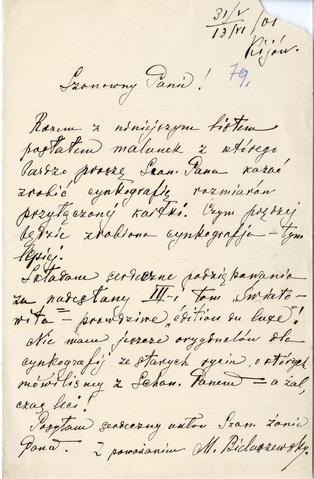 31/V
13/VI /01
Kijów.
79.
Szanowny Panie!
Razem z niniejszym listem
posłałem malunek z którego
bardzo proszę Szan. Pana kazać
zrobić cynkografję rozmiarów
przyłączonej kartki. Czym prędzej
będzie zrobiona cynkografja – tym
lepiej.
Składam serdeczne podziękowania
za nadesłany III-i tom „Świato-
wita" – prawdziwe „edition de luxe!
Nie mam jeszcze oryginałów dla
cynkografij ze starych rycin, o których
mówiliśmy z Szan. Panem = a żal,
czas leci!
Posyłam serdeczny ukłon Szan. żonie
Pana. Z poważaniem M. Bielaszewsky.